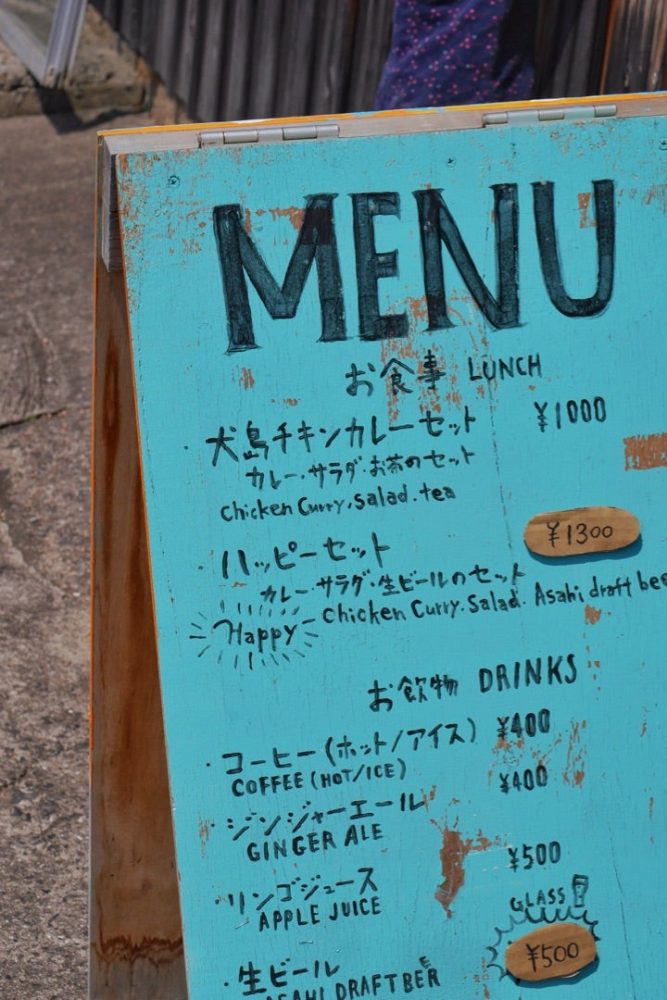 MENU
お食事 LUNCH
・犬島チキンカレーセット ¥1000
カレー・サラダ・お茶のセット
chicken Curry. salad. tea
・ハッピーセット ¥1300
カレー・サラダ・生ビールのセット
Happy chicken Curry. Salad. Asahi draft bee
お飲物 DRINKS
・コーヒー(ホット/アイス) ¥400
COFFEE (HOT/ICE)
・ジンジャーエール ¥400
GINGER ALE
・リンゴジュース ¥500
APPLE JUICE
GLASS
・生ビール ¥500
ASAHI DRAFT BEER